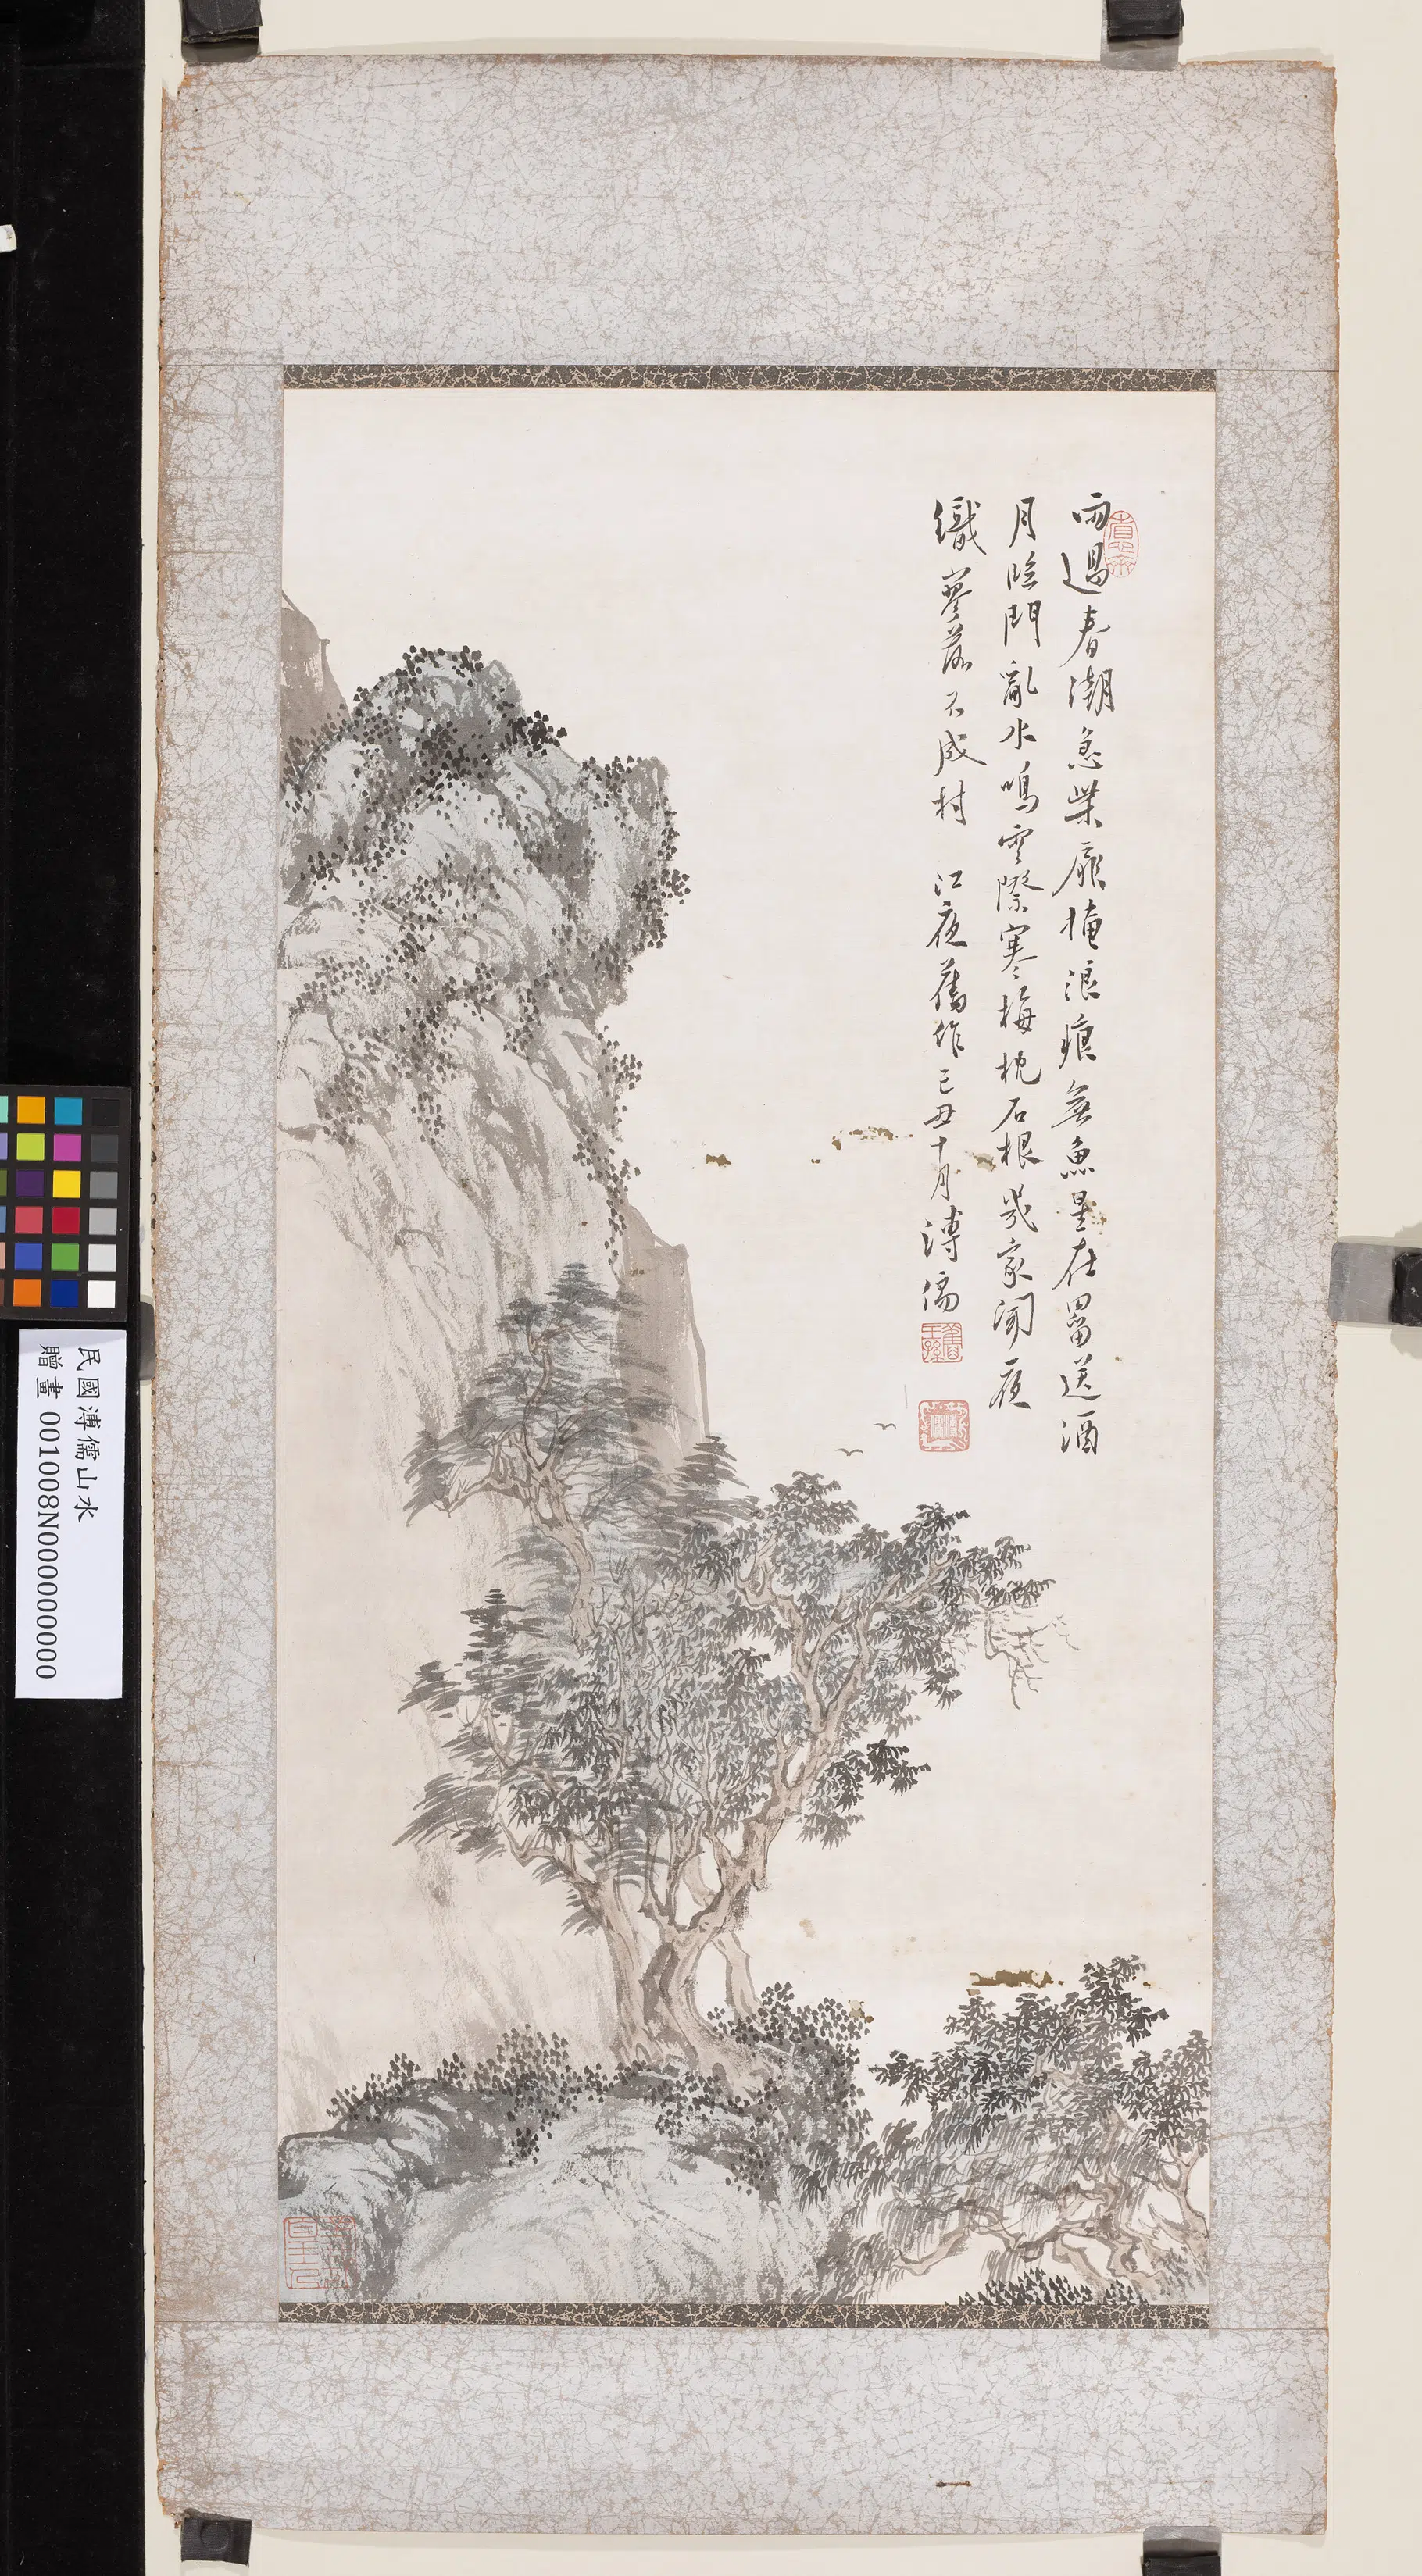 雨過春潮急柴扉掩浪痕無魚星在罶送酒
月臨門亂水鳴雲際寒梅枕石根幾家聞夜
織寥落不成村 江夜舊作己丑十月溥儒
舊王孫
溥儒
民國溥儒山水
贈畫 001008N000000000